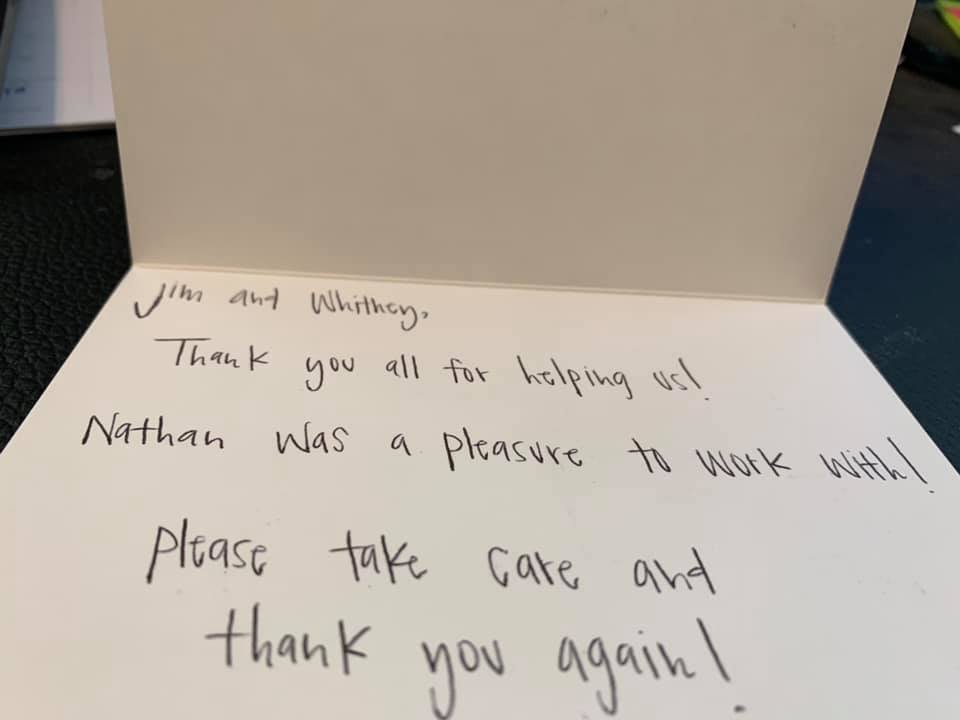 Jim and Whitney,
Thank you all for helping us!
Nathan was a pleasure to work with!
Please take care and
thank you again!